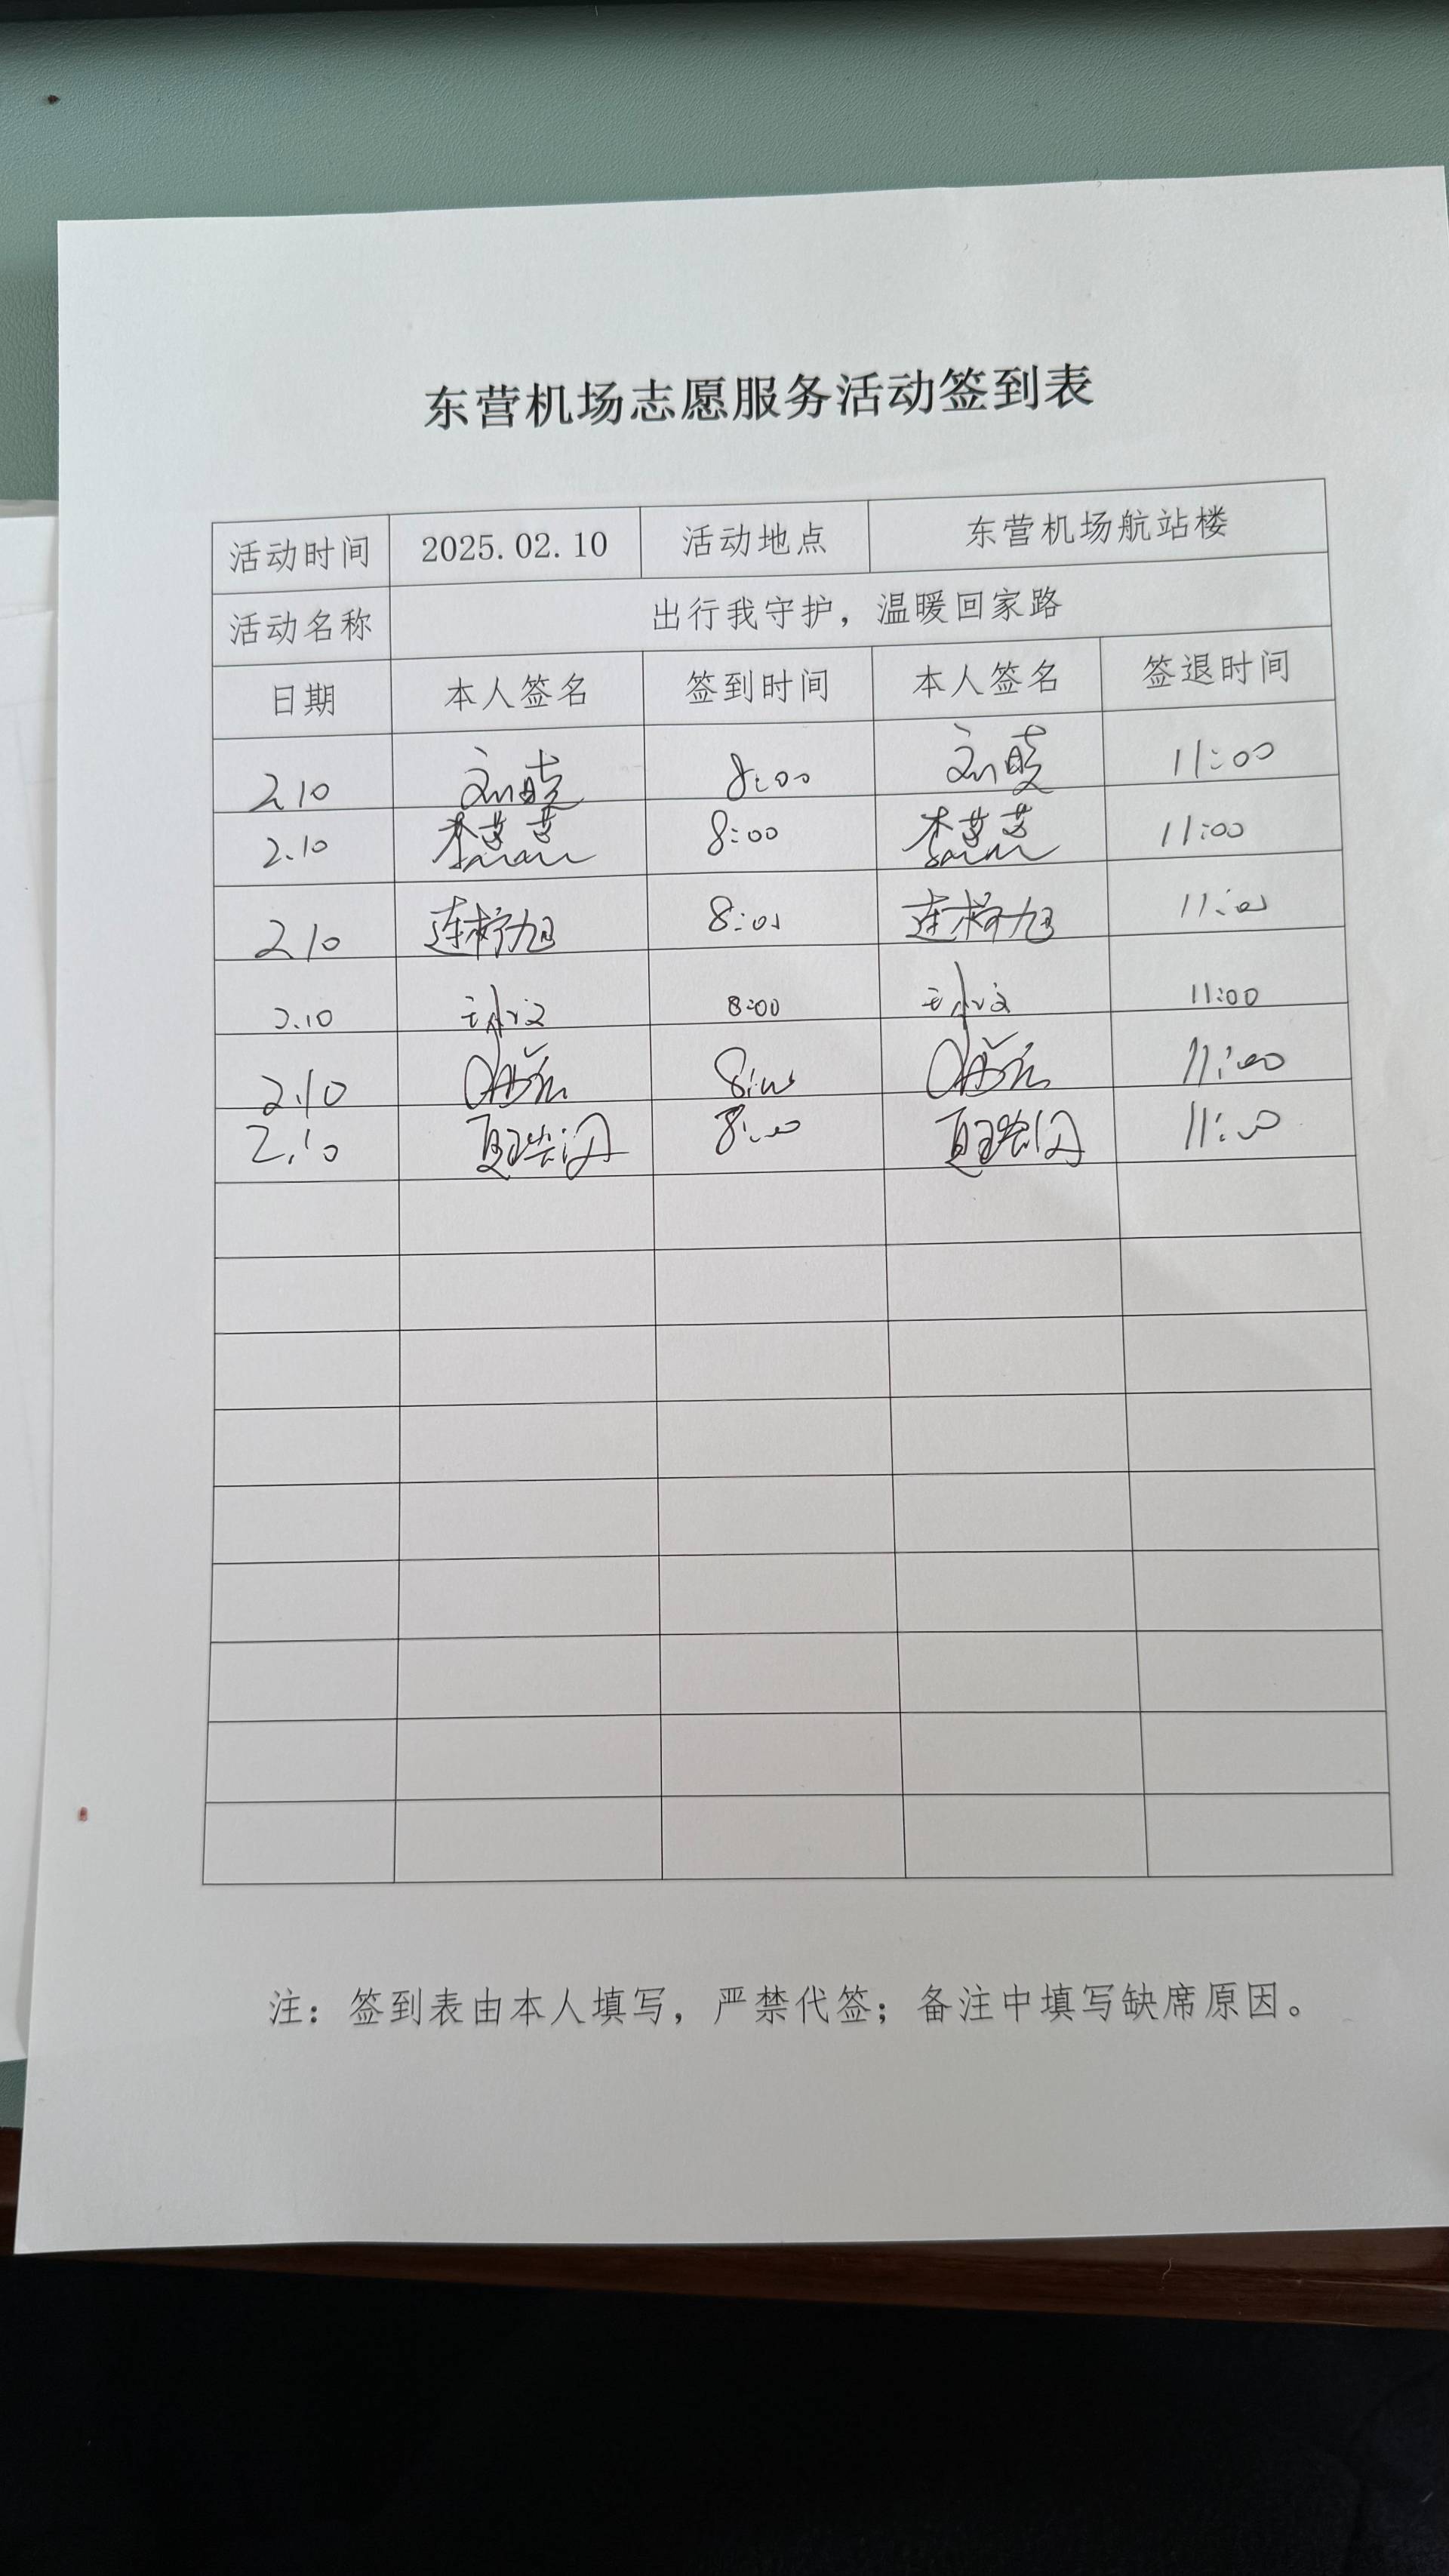 东营机场志愿服务活动签到表
活动时间 2025.02.10 活动地点 东营机场航站楼
活动名称 出行我守护，温暖回家路
日期 本人签名 签到时间 本人签名 签退时间
2.10 刘晓 8:00 刘晓 11:00
2.10 8:00 11:00
2.10 连柠旭 8:00 连柠旭 11:00
2.10 8:00 11:00
2.10 8:00 11:00
2.10 8:00 11:00
注：签到表由本人填写，严禁代签；备注中填写缺席原因。